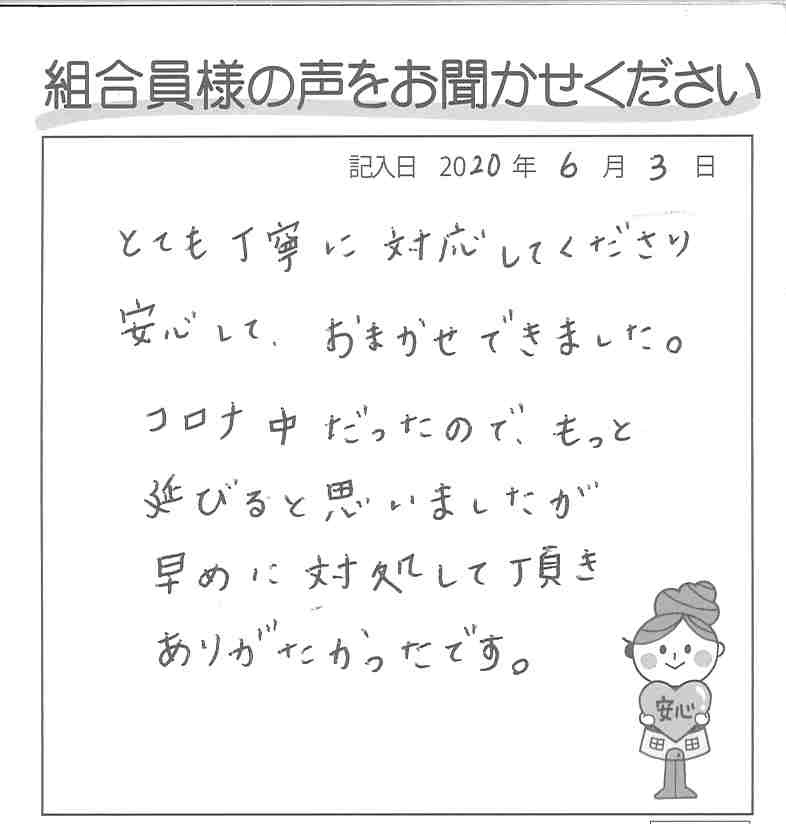 組合員様の声をお聞かせください
記入日 2020年 6月 3日
とても丁寧に対応してくださり
安心して、おまかせできました。
コロナ中だったので、もっと
延びると思いましたが
早めに対処して頂き
ありがたかったです。
安心